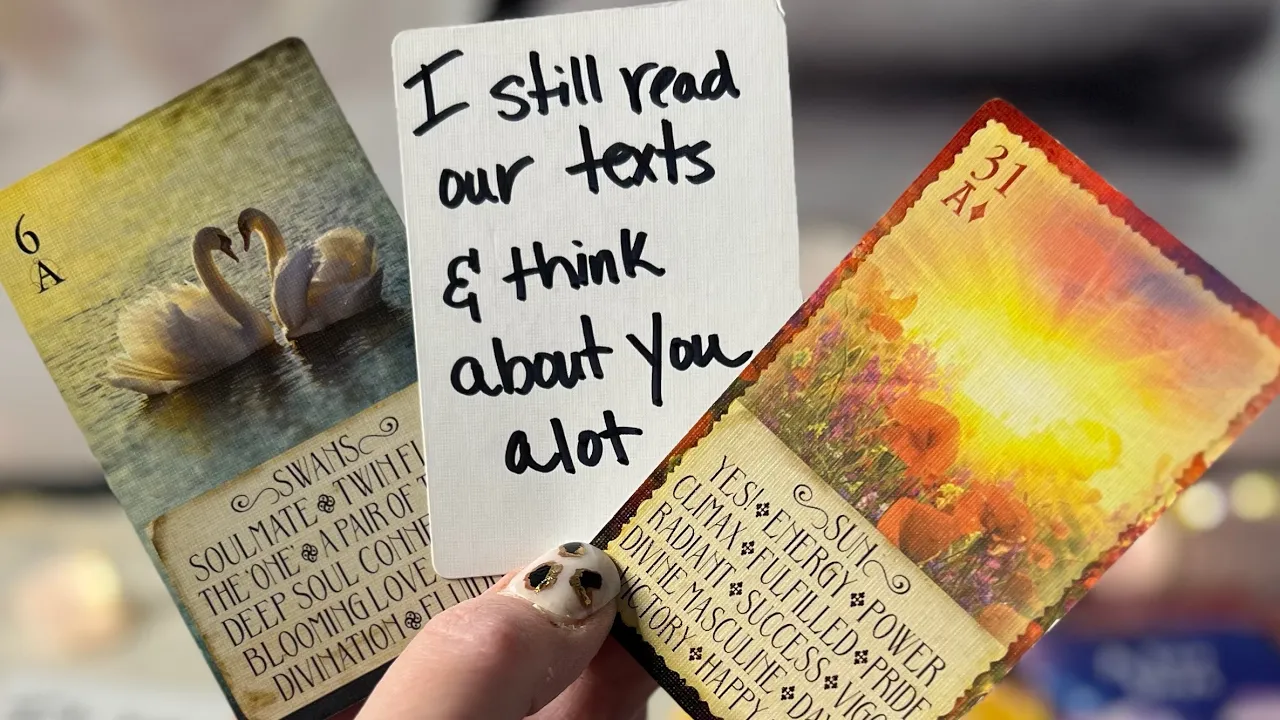 6
A
SWANS
SOULMATE TWIN
THE 'ONE' A PAIR OF
DEEP SOUL
BLOOMING LOVE
DIVINATION
I still read
our texts
& think
about you
alot
31
A♦
SUN
YES! ENERGY POWER
CLIMAX FULFILLED PRIDE
RADIANT SUCCESS
DIVINE MASCULINE
HAPPY